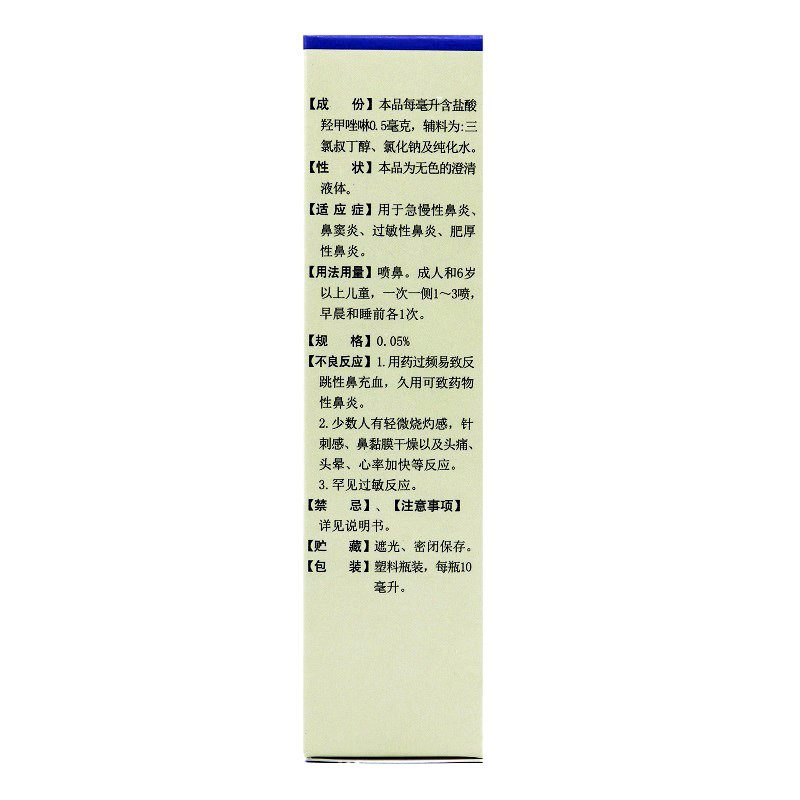 【成　份】本品每毫升含盐酸
羟甲唑啉0.5毫克，辅料为:三
氯叔丁醇、氯化钠及纯化水。
【性　状】本品为无色的澄清
液体。
【适 应 症】用于急慢性鼻炎、
鼻窦炎、过敏性鼻炎、肥厚
性鼻炎。
【用法用量】喷鼻。成人和6岁
以上儿童，一次一侧1～3喷，
早晨和睡前各1次。
【规　格】0.05%
【不良反应】1.用药过频易致反
跳性鼻充血，久用可致药物
性鼻炎。
2.少数人有轻微烧灼感，针
刺感、鼻黏膜干燥以及头痛、
头晕、心率加快等反应。
3.罕见过敏反应。
【禁　忌】、【注意事项】
详见说明书。
【贮　藏】遮光、密闭保存。
【包　装】塑料瓶装，每瓶10
毫升。